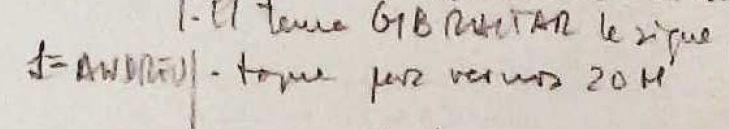 1.- El tema GIBRALTAR le sigue
J=ANDREU - toque para vernos 20 M